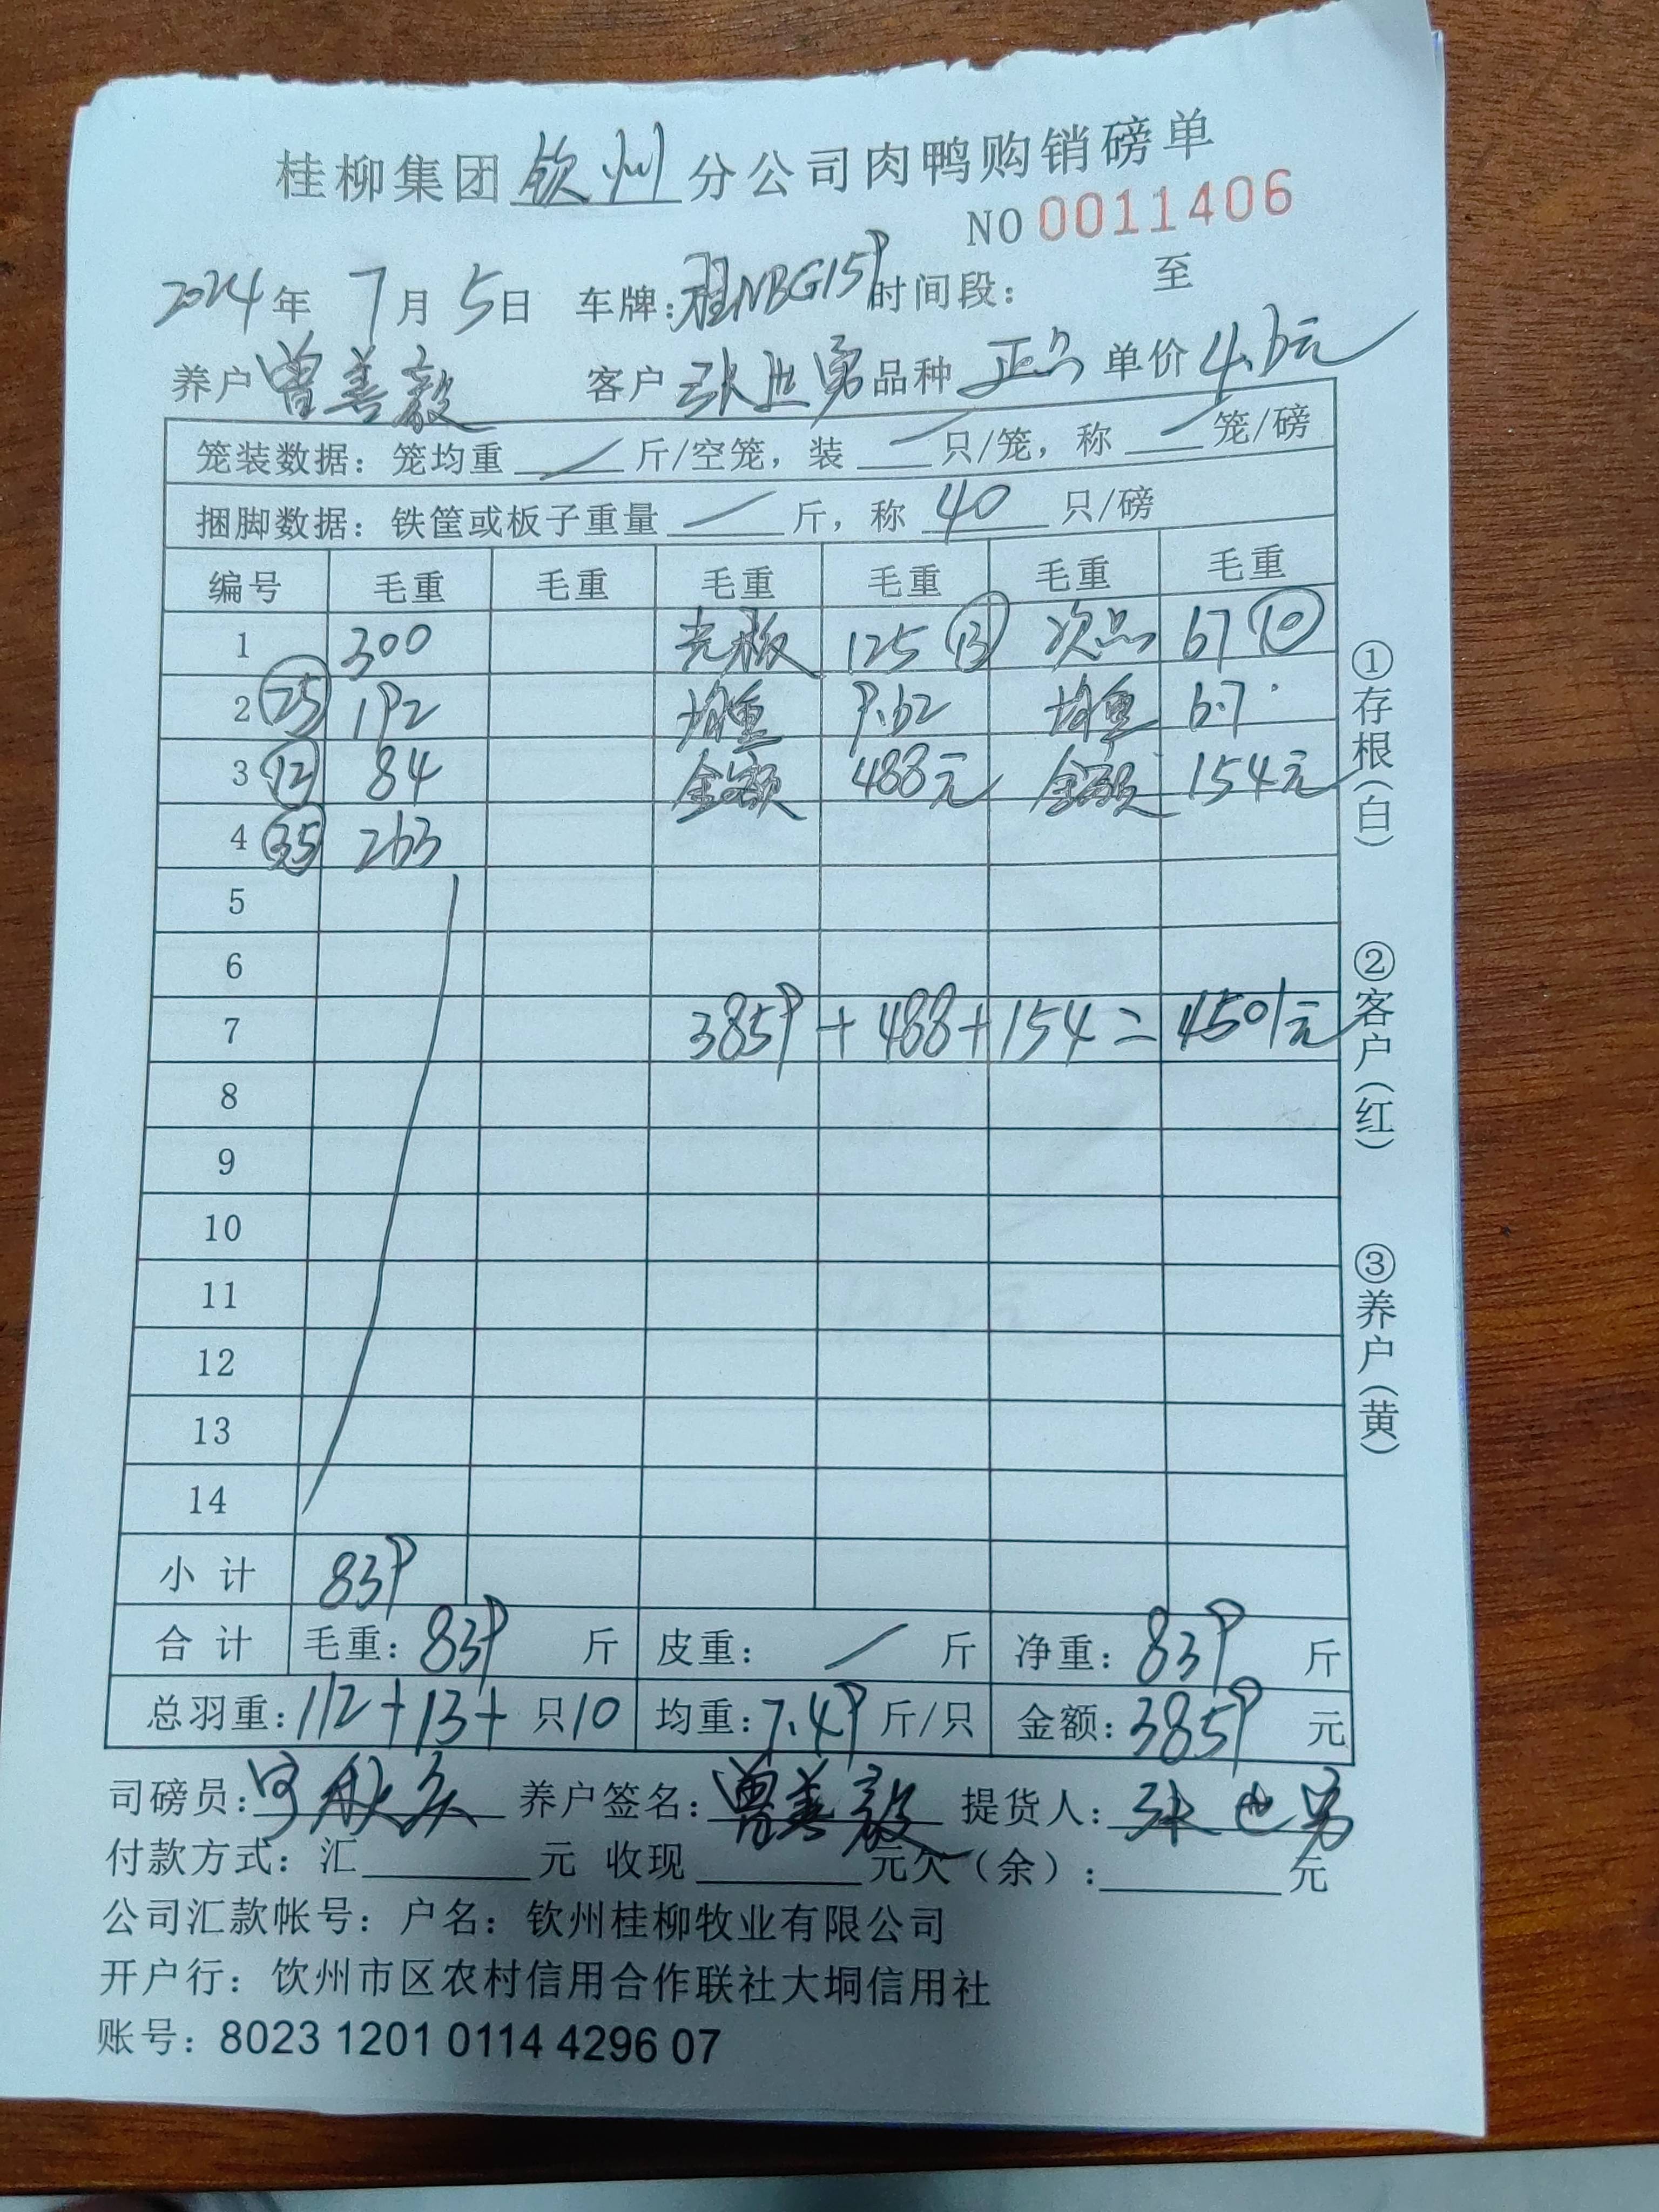 桂柳集团钦州分公司肉鸭购销磅单
NO 0011406
2024年 7月 5日 车牌:桂NBG159 时间段: 至
养户 曾善毅 客户 张世勇 品种 正品 单价 4.6元
笼装数据: 笼均重 / 斤/空笼, 装 / 只/笼, 称 / 笼/磅
捆脚数据: 铁筐或板子重量 / 斤, 称 40 只/磅
编号 毛重 毛重 毛重 毛重 毛重 毛重
1 300 光板 125 ⑬ 次品 67 ⑩
2 ㉕ 192 均重 9.62 均重 6.7
3 ⑫ 84 金额 488元 金额 154元
4 ㉟ 263
5
6
7 3859 + 488 + 154 = 4501元
8
9
10
11
12
13
14
小计 839
合计 毛重: 839 斤 皮重: / 斤 净重: 839 斤
总羽重: 112+13+ 只10 均重: 7.49 斤/只 金额: 3859 元
司磅员: 养户签名: 曾善毅 提货人: 张世勇
付款方式: 汇 元 收现 元欠(余): 元
公司汇款帐号: 户名: 钦州桂柳牧业有限公司
开户行: 钦州市区农村信用合作联社大垌信用社
账号: 8023 1201 0114 4296 07
①存根(白)
②客户(红)
③养户(黄)